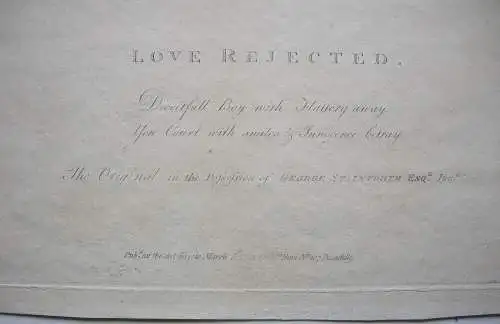 LOVE REJECTED.
Deceitfull Boy with Flattery away
You Court with smiles & Innocence betray
The Original in the Possession of GEORGE STAINFORTH ESQR. Junr.
Publ. as the Act in March Piccadilly